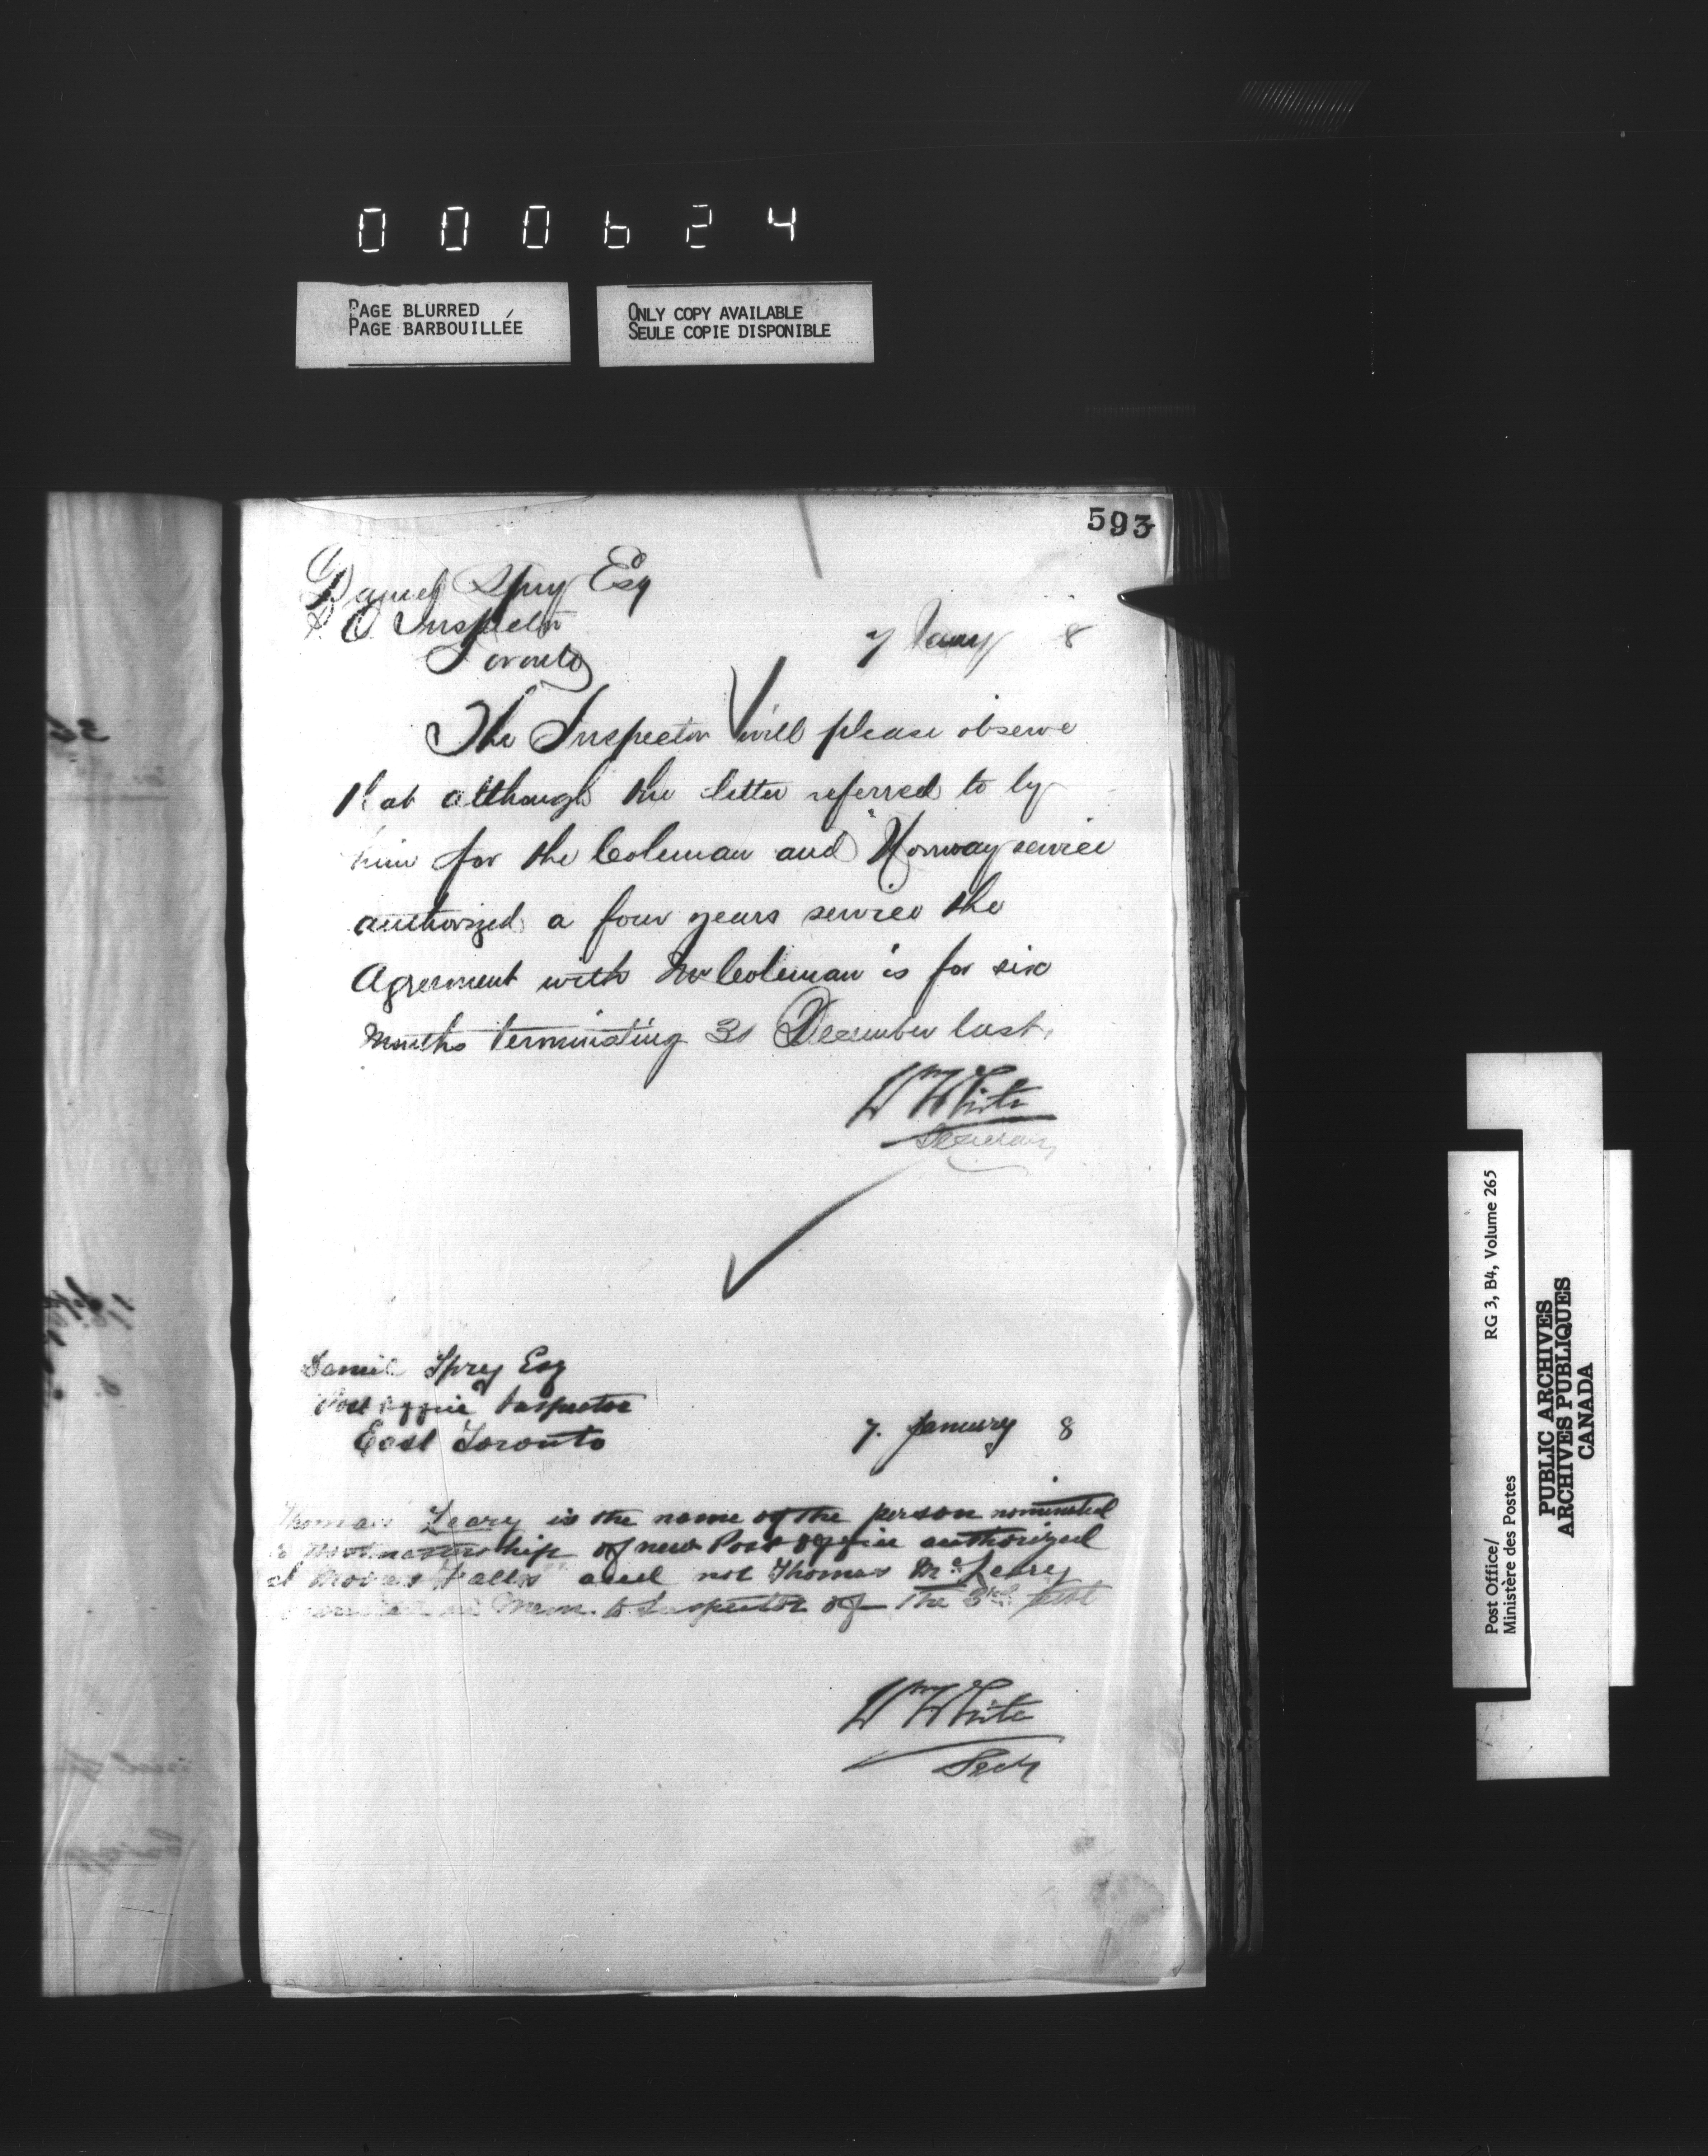 000624
PAGE BLURRED
PAGE BARBOUILLÉE
ONLY COPY AVAILABLE
SEULE COPIE DISPONIBLE
593
Daniel Spry Esq
P O Inspector
Toronto
7 Jany 8
The Inspector will please observe
that although the letter referred to by
him for the Coleman and Norway service
authorized a four years service the
Agreement with Mr Coleman is for six
months terminating 31 December last.
Wm White
Secretary
Daniel Spry Esq
Post Office Inspector
East Toronto
7. January 8
Thomas Leary is the name of the person nominated
to Postmastership of new Post Office authorized
at Falls" and not Thomas McLeary
Mem. to Inspector of the 3rd inst
Wm White
Secy
Post Office/
Ministère des Postes
RG 3, B4, Volume 265
PUBLIC ARCHIVES
ARCHIVES PUBLIQUES
CANADA